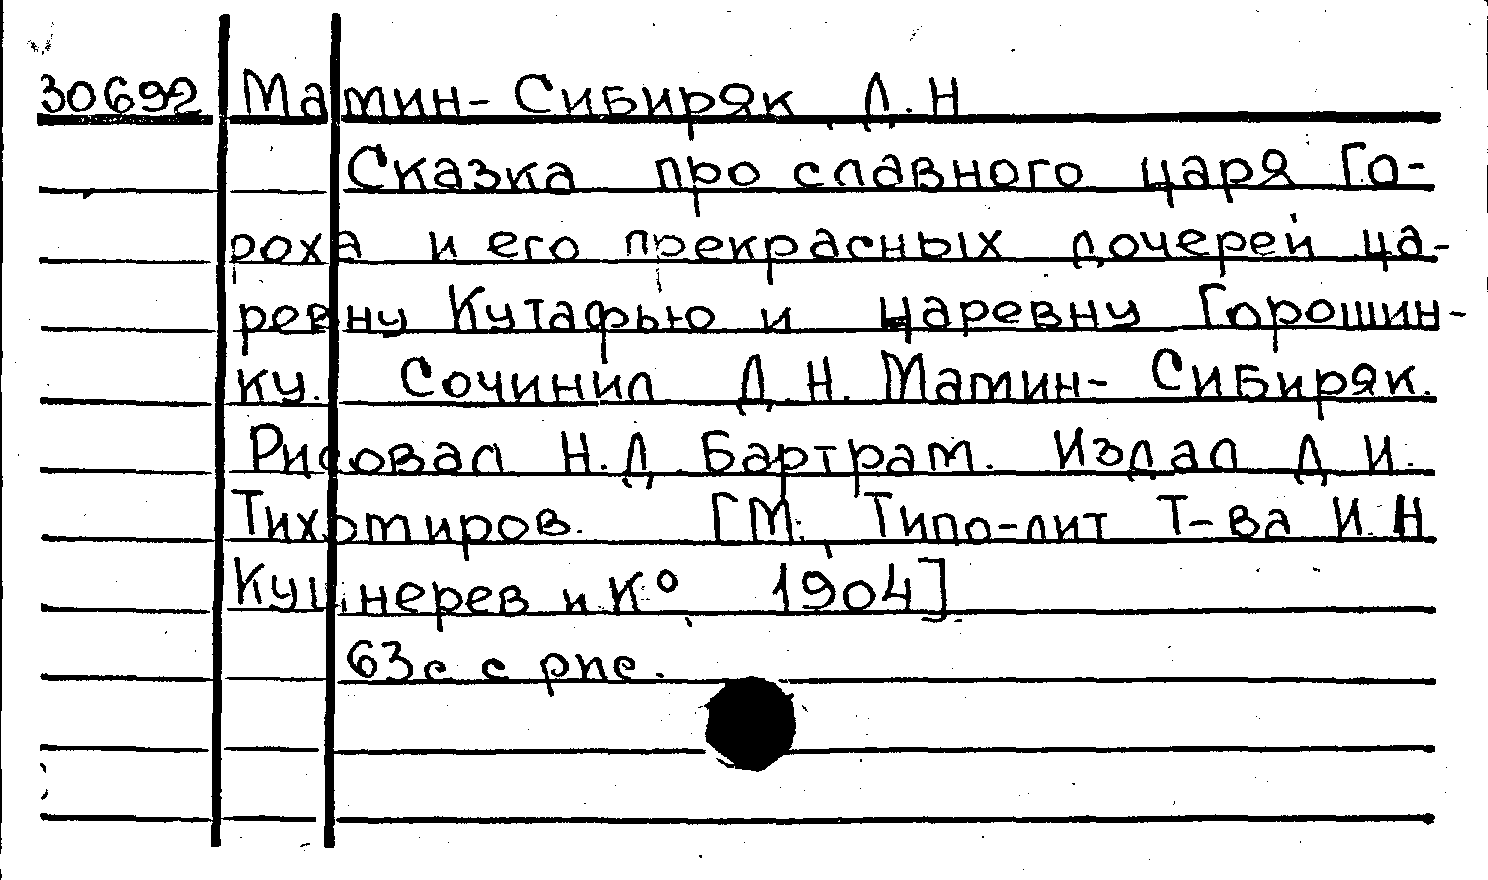 30692 Мамин-Сибиряк Д.Н
Сказка про славного царя Го-
роха и его прекрасных дочерей ца-
ревну Кутафью и царевну Горошин-
ку. Сочинил Д.Н. Мамин-Сибиряк.
Рисовал Н.Д. Бартрам. Издал Д И.
Тихомиров. [М., Типо-лит Т-ва И.Н
Кушнерев и К° 1904].
63с с рис.